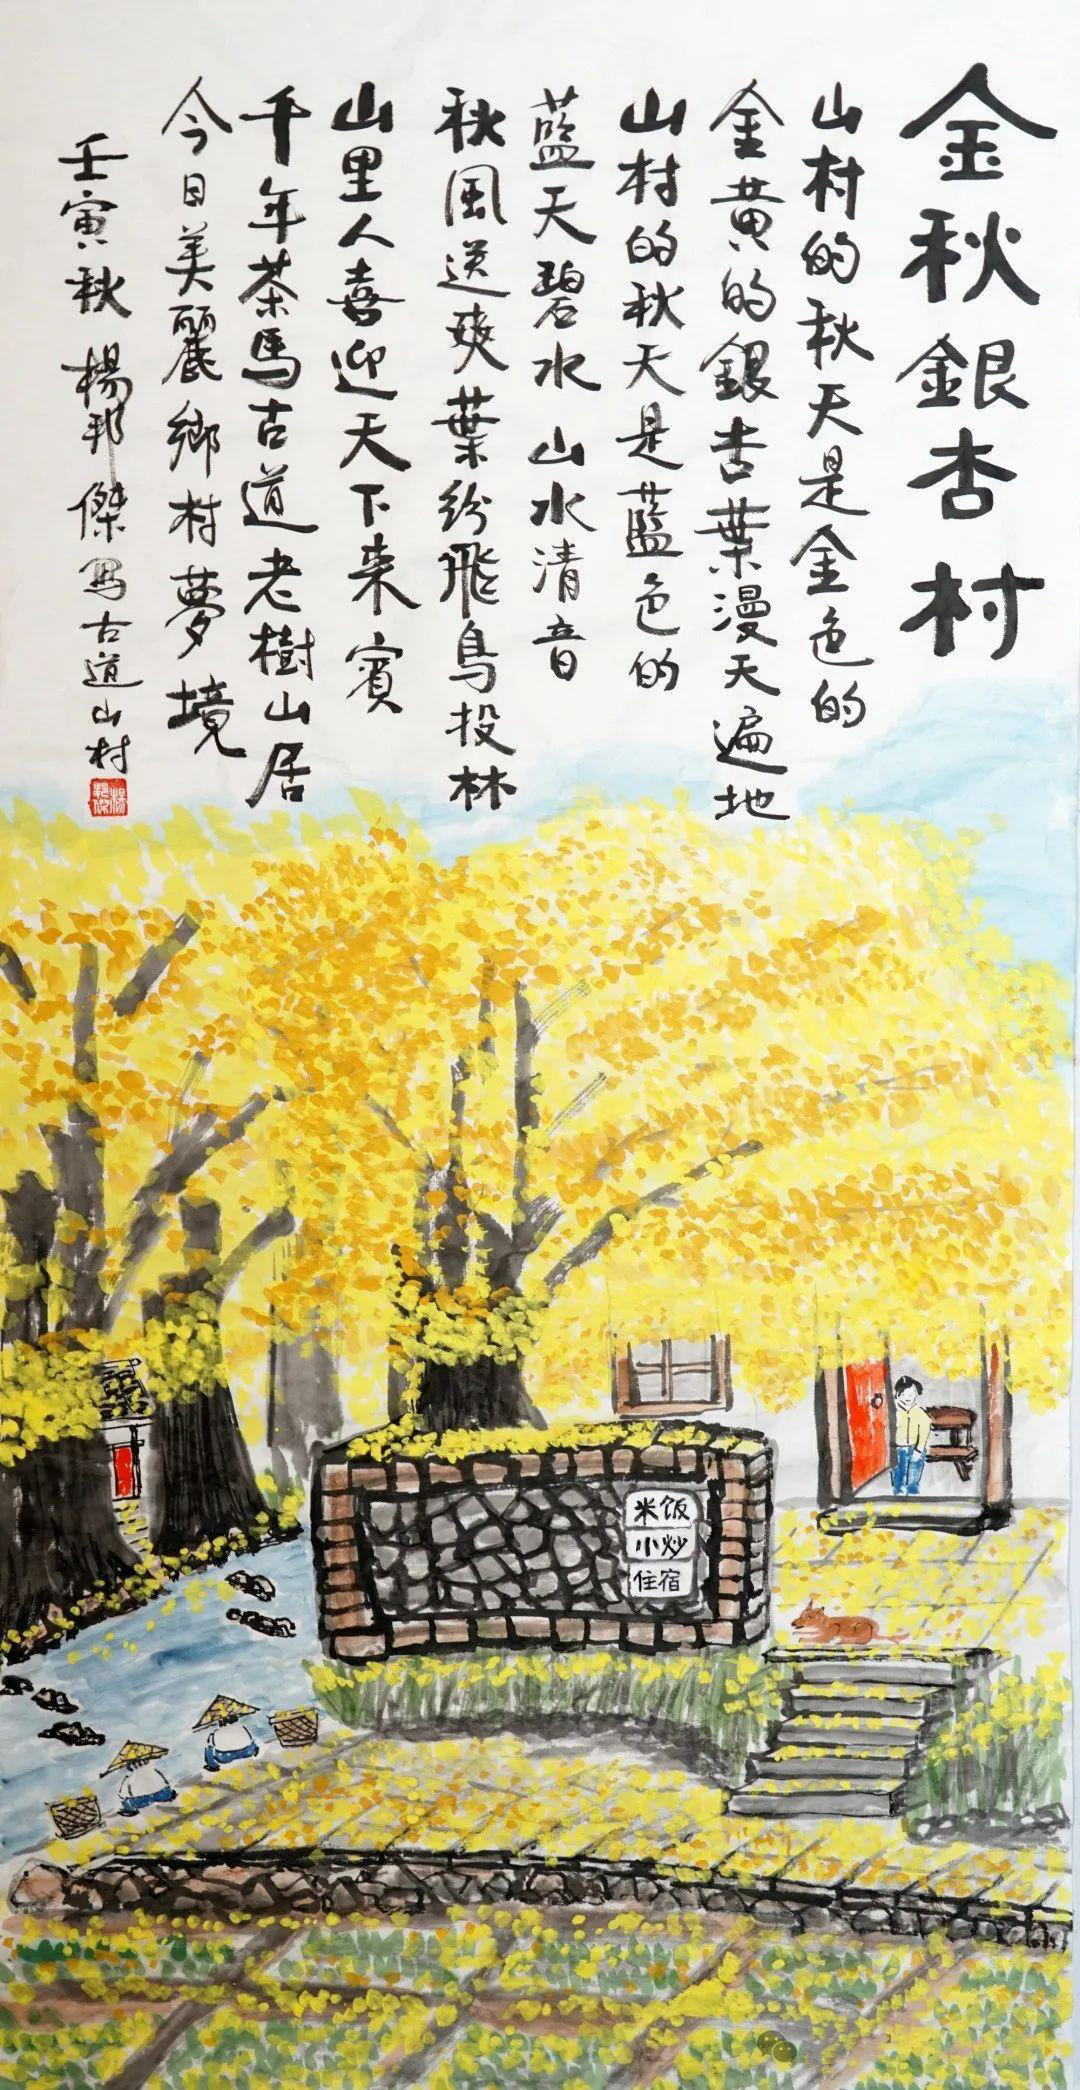 金秋銀杏村
山村的秋天是金色的
金黄的銀杏葉漫天遍地
山村的秋天是藍色的
藍天碧水山水清音
秋風送爽葉紛飛鳥投林
山里人喜迎天下来賓
千年茶馬古道老樹山居
今日美麗鄉村夢境
壬寅秋 楊邦傑寫古道山村
米饭
小炒
住宿